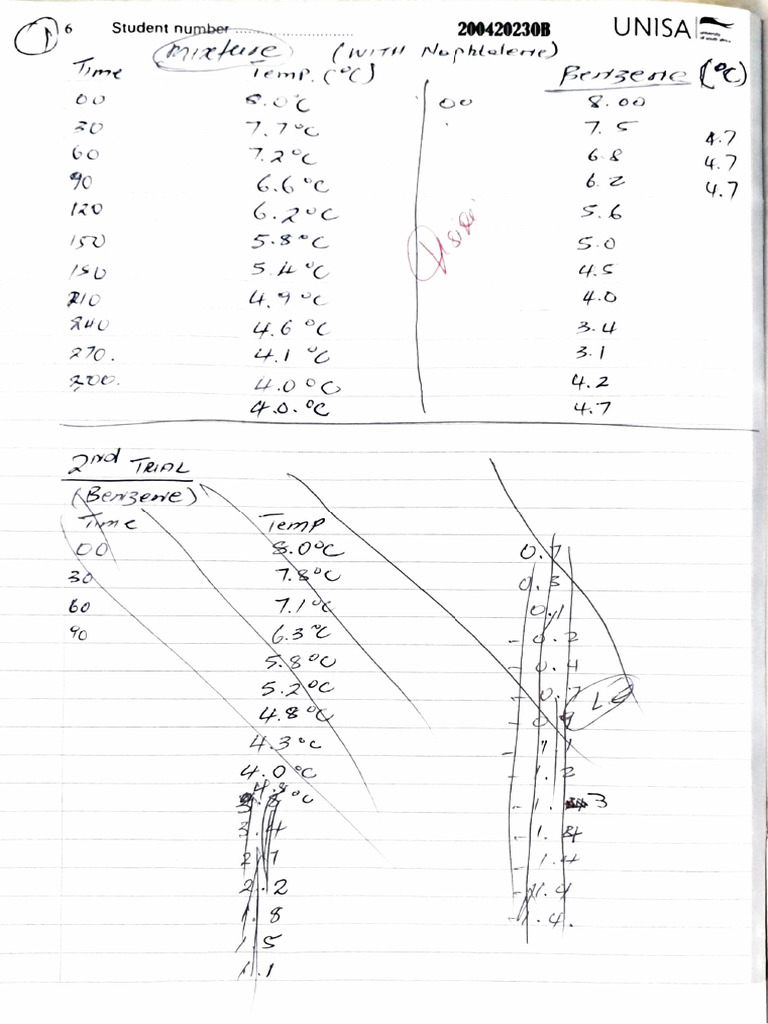 1 6 Student number ........................ 200420230B UNISA
mixture (WITH Naphtalene)
Time Temp. (°C) Benzene (°C)
00 8.0°C 00 8.00
30 7.7°C 7.5 4.7
60 7.2°C 6.8 4.7
90 6.6°C 6.2 4.7
120 6.2°C 5.6
150 5.8°C 5.0
150 5.4°C 4.5
210 4.9°C 4.0
240 4.6°C 3.4
270. 4.1°C 3.1
300. 4.0°C 4.2
4.0.°C 4.7
2nd TRIAL
(Benzene)
Time Temp
00 8.0°C 0.7
30 7.8°C 0.3
60 7.1°C 0.1
90 6.3°C -0.2
5.8°C -0.4
5.2°C -0.7
4.8°C -0.9
4.3°C -1.1
4.0°C -1.2
-1.3
3.4 -1.4
2.7 -1.4
2.2 -1.4
1.8 -1.4.
1.5
1.1